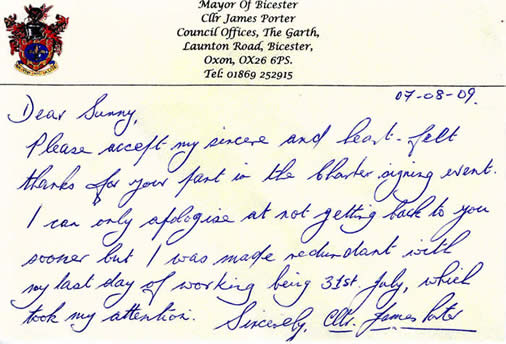 Mayor Of Bicester
Cllr James Porter
Council Offices, The Garth,
Launton Road, Bicester,
Oxon, OX26 6PS.
Tel: 01869 252915
07-08-09.
Dear Sunny,
Please accept my sincere and heart-felt
thanks for your part in the Charter signing event.
I can only apologise at not getting back to you
sooner but I was made redundant with
my last day of working being 31st July, which
took my attention. Sincerely, Cllr. James Porter